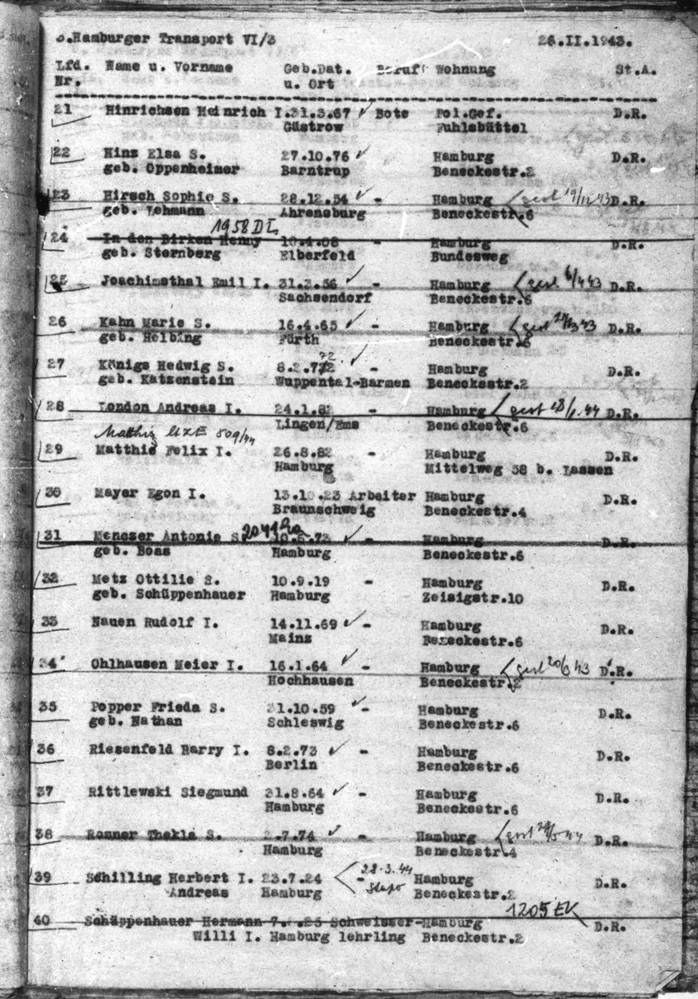 Hamburger Transport VI/3 26.II.1943.
Lfd. Name u. Vorname Geb.Dat. Beruf Wohnung St.A.
Nr. u. Ort
21 Hinrichsen Heinrich I. 31.3.67 Bote Pol.Gef. D.R.
Güstrow Fuhlsbüttel
22 Hinz Elsa S. 27.10.76 Hamburg D.R.
geb. Oppenheimer Barntrup Beneckestr.2
23 Hirsch Sophie S. 28.12.54 - Hamburg gest 19/11 43 D.R.
geb. Lehmann Ahrensburg Beneckestr.6
1958 DZ
24 In den Birken Henny Hamburg D.R.
geb. Sternberg Elberfeld Bundesweg
25 Joachimsthal Emil I. 31.3.56 - Hamburg gest 6/4 43 D.R.
Sachsendorf Beneckestr.6
26 Kahn Marie S. 16.4.65 - Hamburg gest 43 D.R.
geb. Helbing Fürth Beneckestr.
72
27 Königs Hedwig S. 8.2. - Hamburg D.R.
geb. Katzenstein Wuppental-Barmen Beneckestr.2
28 London Andreas I. 24.1. - Hamburg gest 18/1. 44 D.R.
Lingen/Ems Beneckestr.6
Matthis 509/44
29 Matthis Felix I. 26.8.82 - Hamburg D.R.
Hamburg Mittelweg 38 b. Lassen
30 Mayer Egon I. 13.10.23 Arbeiter Hamburg D.R.
Braunschweig Beneckestr.4
31 Menczer Antonie - Hamburg D.R.
geb. Boas Hamburg Beneckestr.6
32 Metz Ottilie S. 10.9.19 - Hamburg D.R.
geb. Schüppenhauer Hamburg Zeisigstr.10
33 Nauen Rudolf I. 14.11.69 - Hamburg D.R.
Mainz Beneckestr.6
34 Ohlhausen Meier I. 16.1.64 - Hamburg gest 20/3 43 D.R.
Hochhausen Beneckestr.
35 Popper Frieda S. 31.10.59 - Hamburg D.R.
geb. Nathan Schleswig Beneckestr.6
36 Riesenfeld Harry I. 8.2.73 - Hamburg D.R.
Berlin Beneckestr.6
37 Rittlewski Siegmund 31.8.64 - Hamburg D.R.
Hamburg Beneckestr.6
38 Ronner Thekla S. 7.74 - Hamburg gest 44 D.R.
Hamburg Beneckestr.4
28.3.44
39 Schilling Herbert I. 23.7.24 - Hamburg D.R.
Andreas Hamburg Stapo Beneckestr.2
1205 EK
40 Schüppenhauer Hermann Schweisser- Hamburg D.R.
Willi I. Hamburg lehrling Beneckestr.2